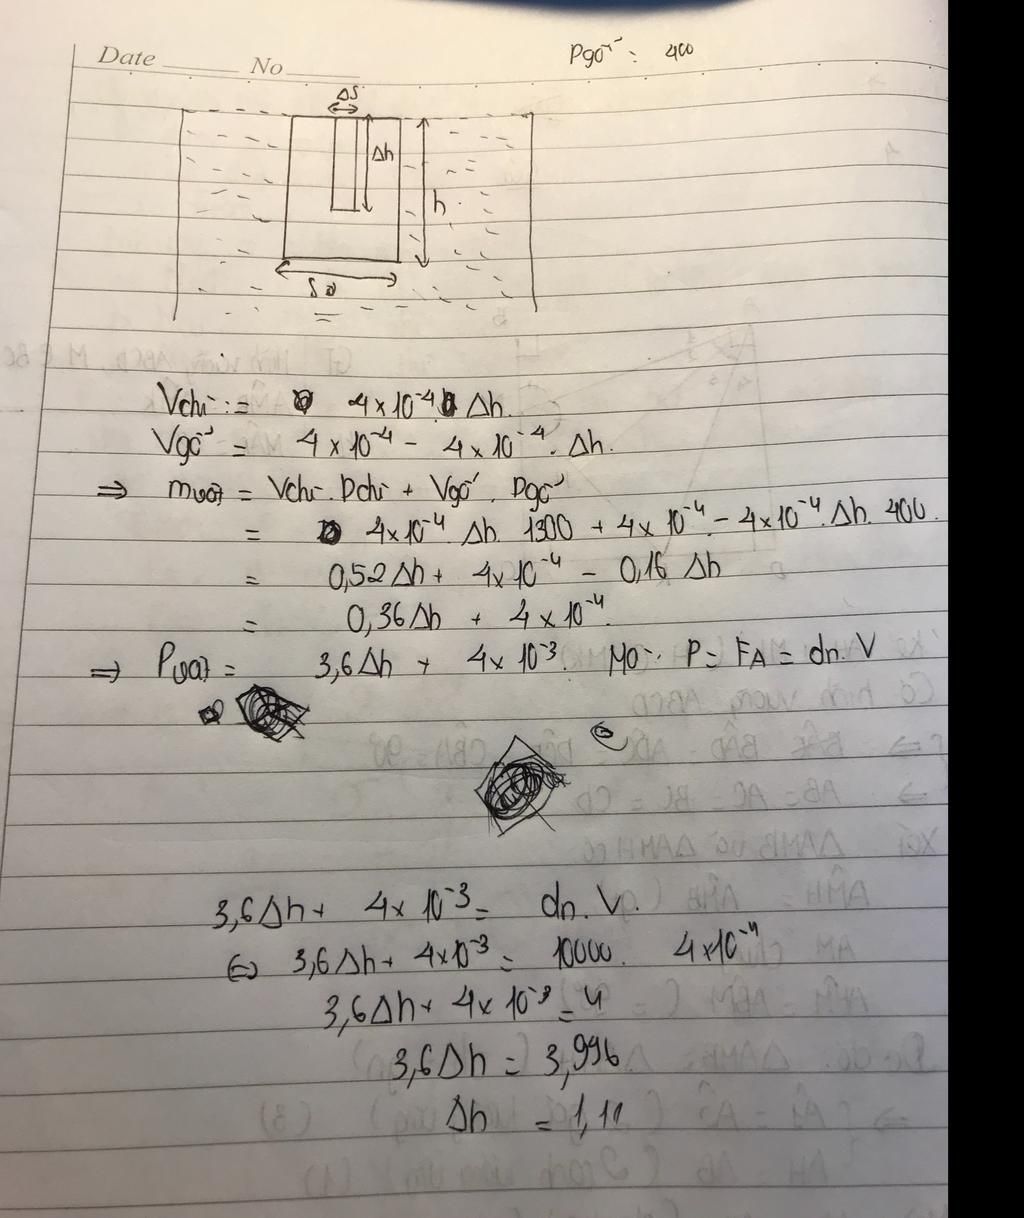 Pgỗ = 400
Date No
ΔS
Δh
h
S
Vchì = 4×10⁻⁴ Δh.
Vgỗ = 4×10⁻⁴ - 4×10⁻⁴. Δh.
⇒ mvật = Vchì. Dchì + Vgỗ. Dgỗ
= 4×10⁻⁴. Δh. 1300 + 4×10⁻⁴ - 4×10⁻⁴. Δh. 400.
= 0,52Δh + 4×10⁻⁴ - 0,16 Δh
= 0,36Δh + 4×10⁻⁴.
⇒ Pvật = 3,6Δh + 4×10⁻³. Mà P = FA = dn. V
3,6Δh + 4×10⁻³ = dn. V.
⇔ 3,6Δh + 4×10⁻³ = 10000. 4×10⁻⁴
3,6Δh + 4×10⁻³ = 4
3,6Δh = 3,996
Δh = 1,11